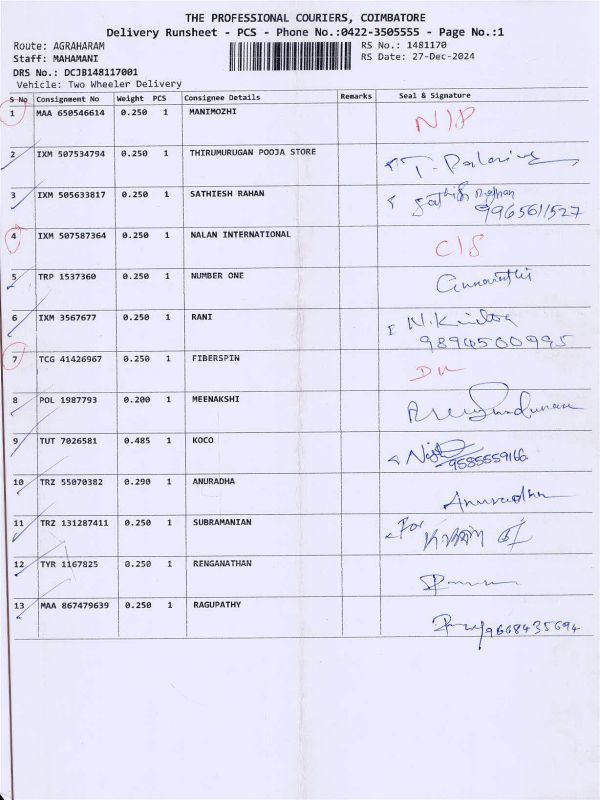 THE PROFESSIONAL COURIERS, COIMBATORE
Delivery Runsheet - PCS - Phone No.:0422-3505555 - Page No.:1
Route: AGRAHARAM RS No.: 1481170
Staff: MAHAMANI RS Date: 27-Dec-2024
DRS No.: DCJB148117001
Vehicle: Two Wheeler Delivery
S No Consignment No Weight PCS Consignee Details Remarks Seal & Signature
1 MAA 650546614 0.250 1 MANIMOZHI N/P
2 IXM 507534794 0.250 1 THIRUMURUGAN POOJA STORE
3 IXM 505633817 0.250 1 SATHIESH RAHAN
9965611527
4 IXM 507587364 0.250 1 NALAN INTERNATIONAL C/S
5 TRP 1537360 0.250 1 NUMBER ONE
6 IXM 3567677 0.250 1 RANI
9894500995
7 TCG 41426967 0.250 1 FIBERSPIN
8 POL 1987793 0.200 1 MEENAKSHI
9 TUT 7026581 0.485 1 KOCO
9585559166
10 TRZ 55070382 0.290 1 ANURADHA
Anuradha
11 TRZ 131287411 0.250 1 SUBRAMANIAN For
12 TYR 1167825 0.250 1 RENGANATHAN
13 MAA 867479639 0.250 1 RAGUPATHY
9668435694